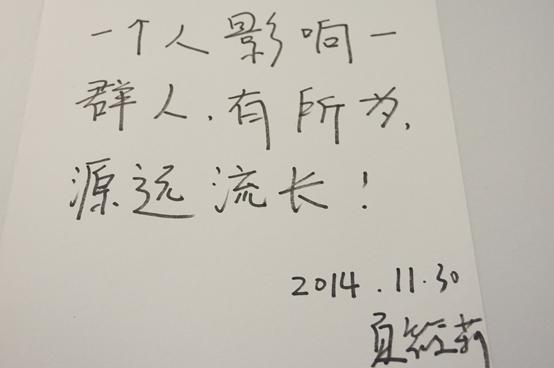 一个人影响一
群人,有所为,
源远流长!
2014.11.30